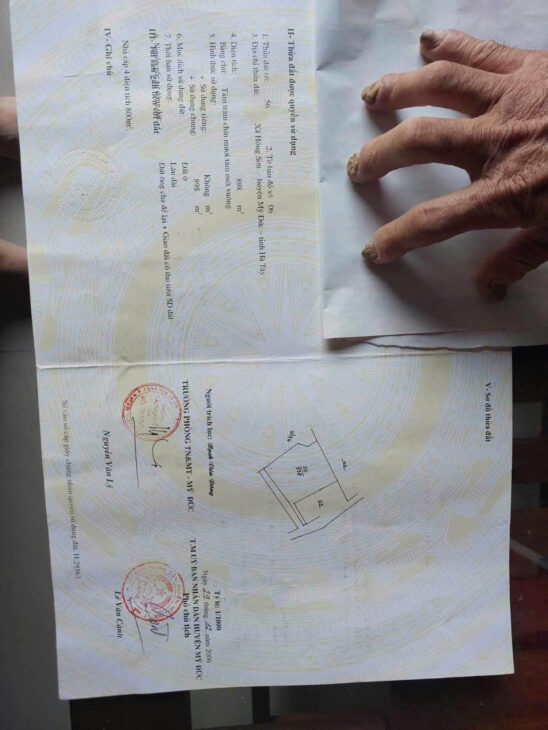 II- Thửa đất được quyền sử dụng
1. Thửa đất số: 56 2. Tờ bản đồ số 06
3. Địa chỉ thửa đất: Xã Hồng Sơn – huyện Mỹ Đức – tỉnh Hà Tây
4. Diện tích: 898 m²
Bằng chữ: Tám trăm chín mươi tám mét vuông
5. Hình thức sử dụng:
+ Sử dụng riêng: Không m²
+ Sử dụng chung: 898 m²
6. Mục đích sử dụng đất: Đất ở
7. Thời hạn sử dụng: Lâu dài
Đất ông cha để lại + Giao đất có thu tiền SD đất
III- Tài sản gắn liền với đất
Nhà cấp 4 diện tích 800m²
IV- Ghi chú
V- Sơ đồ thửa đất
Người trích lục:
TRƯỞNG PHÒNG TN&MT - MỸ ĐỨC
Nguyễn Văn Lý
Tỷ lệ: 1/1000
Ngày 29 tháng 12 năm 2006
T.M UỶ BAN NHÂN DÂN HUYỆN MỸ ĐỨC
Phó chủ tịch
Lê Văn Cảnh
Số vào sổ cấp giấy chứng nhận quyền sử dụng đất: H